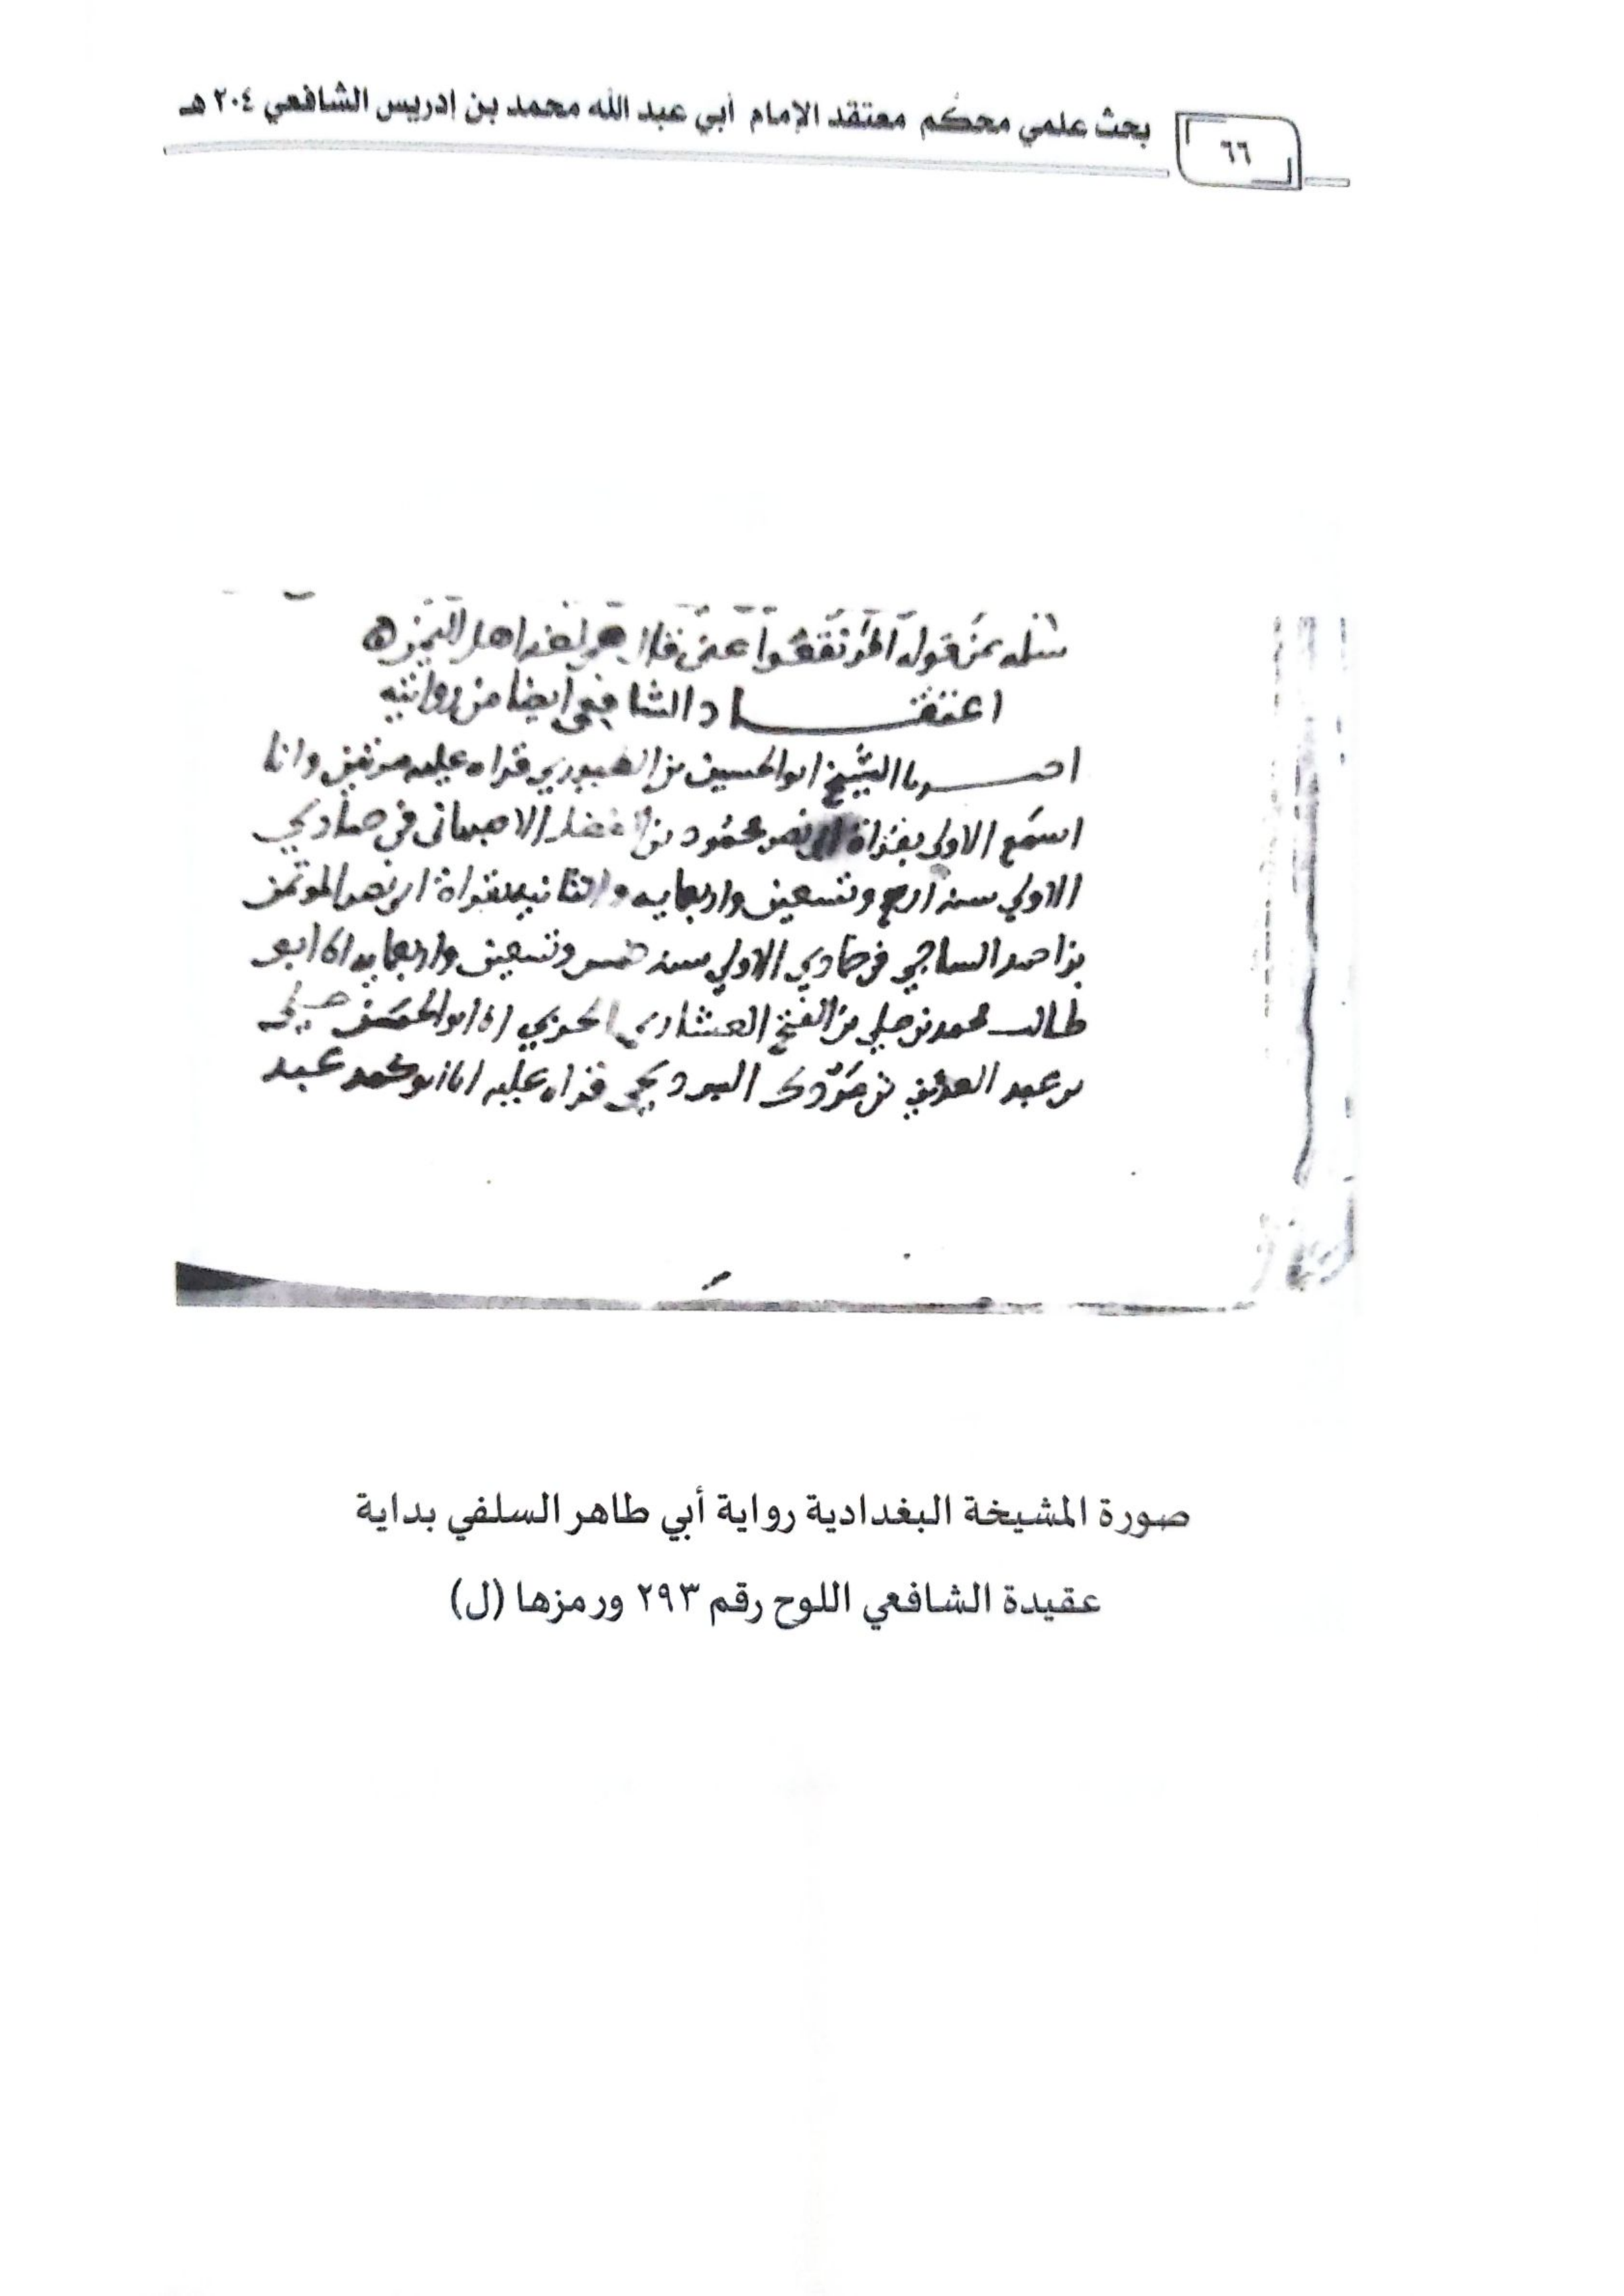 ٦٦
بحث علمي محكم معتقد الإمام أبي عبد الله محمد بن إدريس الشافعي ٢٠٤ هـ
قوله
اعتقاد الشافعي ايضا من روايته
اخبرنا الشيخ ابو الحسين بن الطيوري قراه عليه مرتين وانا
اسمع الاولي بقراة ابي نصر محمود بن الفضل الاصبهاني في جمادي
الاولي سنه اربع وتسعين واربعمايه والثانيه بقراة ابي نصر الموتمن
بن احمد الساجي في جمادي الاولي سنه خمس وتسعين واربعمايه انا ابو
طالب محمد بن علي بن الفتح العشاري الحربي انا ابو الحسن علي
بن عبد العزيز بن مردك البردعي قراه عليه انا ابو محمد عبد
صورة المشيخة البغدادية رواية أبي طاهر السلفي بداية
عقيدة الشافعي اللوح رقم ٢٩٣ ورمزها (ل)